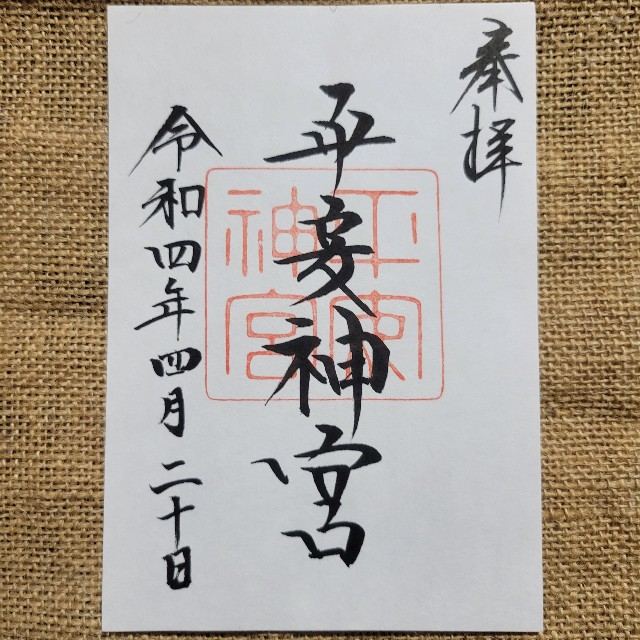 奉拝
平安神宮
平安神宮
令和四年四月二十日